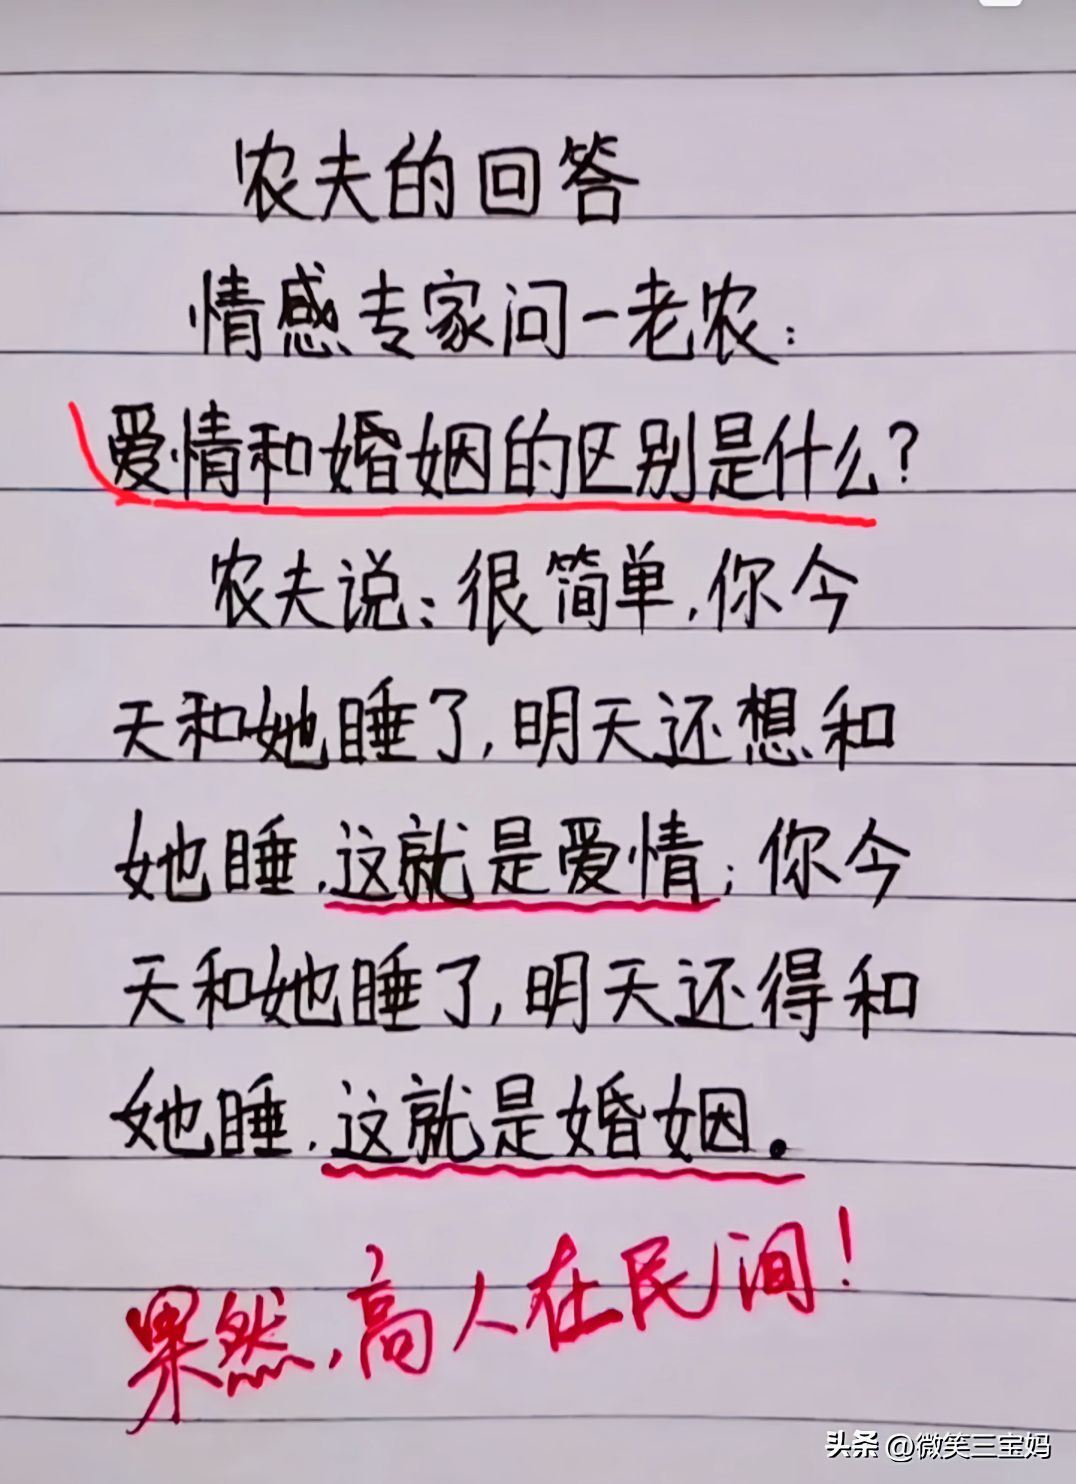 农夫的回答
情感专家问一老农：
爱情和婚姻的区别是什么？
农夫说：很简单，你今
天和她睡了，明天还想和
她睡，这就是爱情；你今
天和她睡了，明天还得和
她睡，这就是婚姻。
果然，高人在民间！
头条 @微笑三宝妈